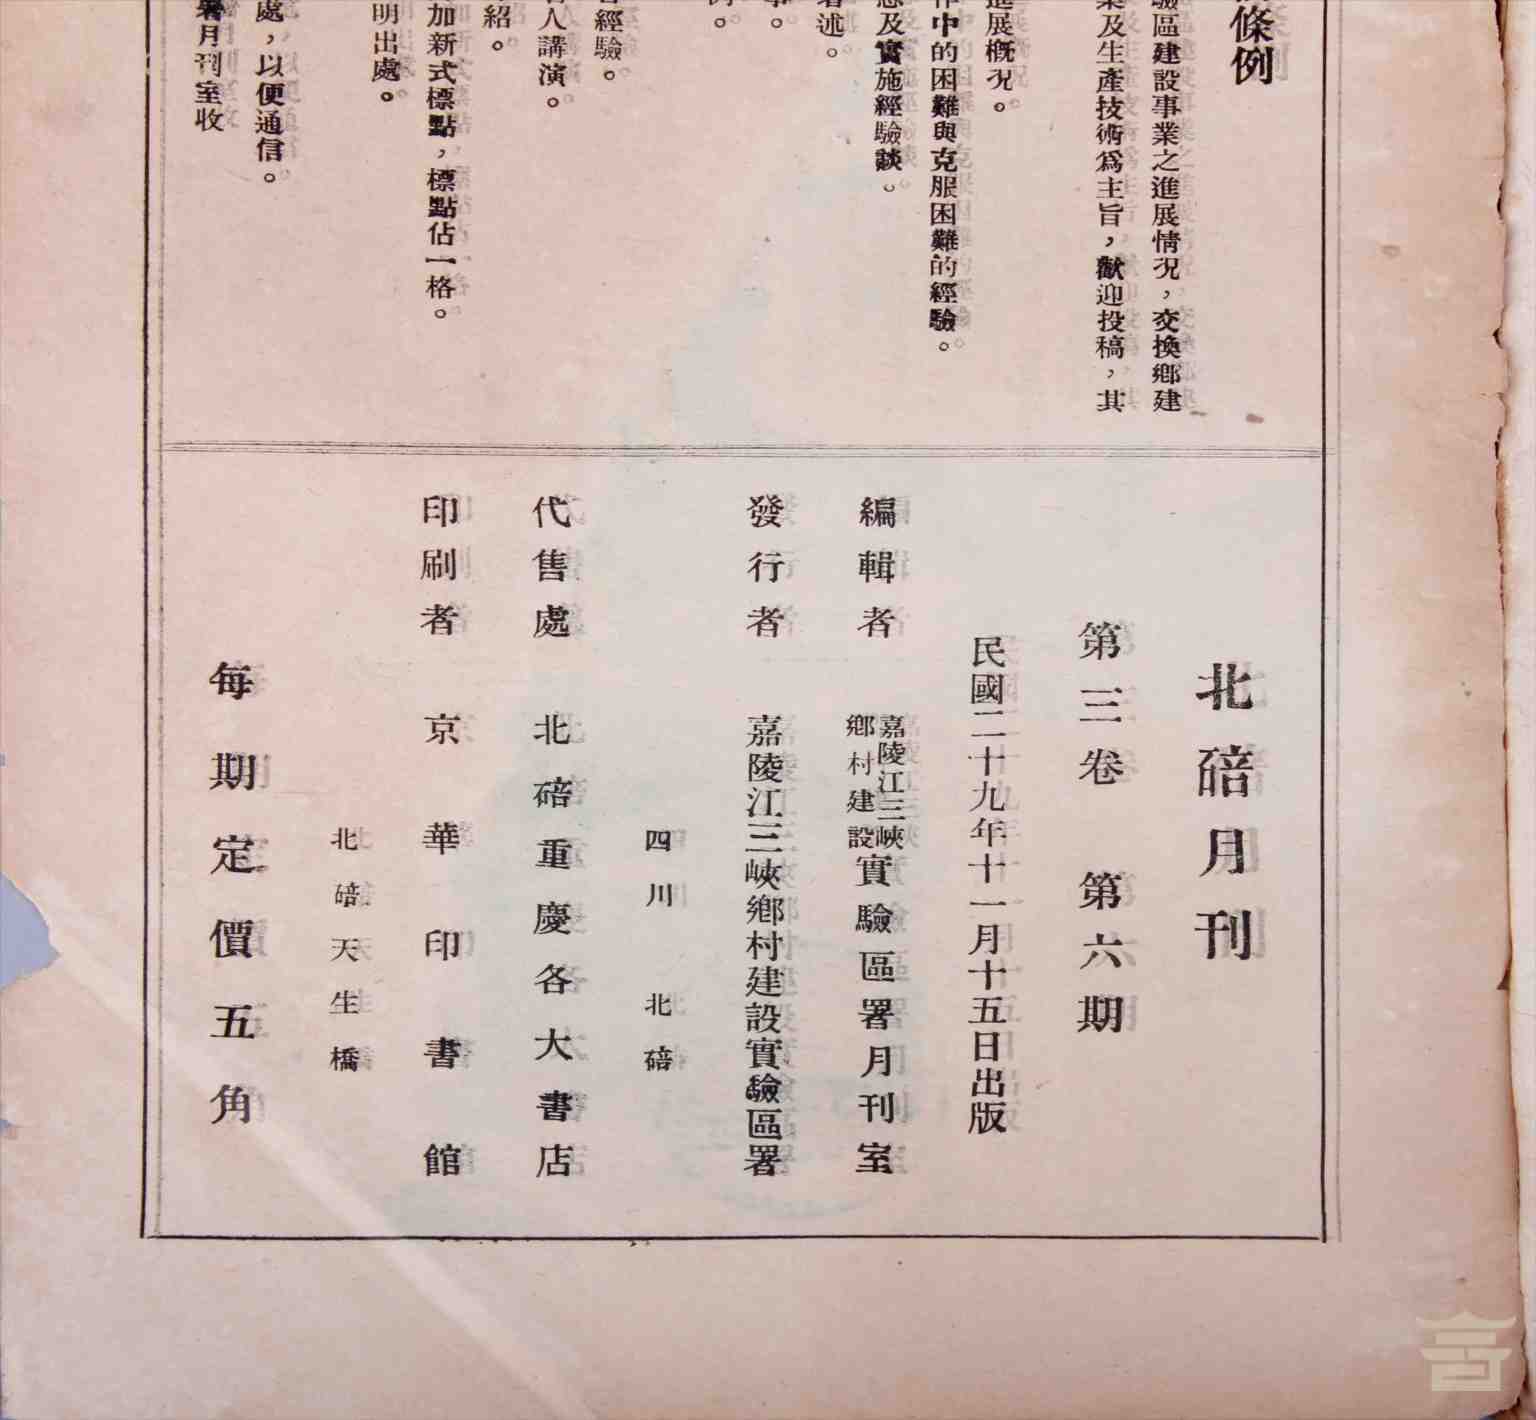 條例
驗區建設事業之進展情況，交換鄉建
業及生產技術爲主旨，歡迎投稿，其
進展概況。
作中的困難與克服困難的經驗。
及實施經驗談。
述。
經驗。
人講演。
紹。
加新式標點，標點佔一格。
明出處。
處，以便通信。
署月刊室收
北碚月刊
第三卷　第六期
民國二十九年十一月十五日出版
編輯者　嘉陵江三峽鄉村建設實驗區署月刊室
發行者　嘉陵江三峽鄉村建設實驗區署
四川　北碚
代售處　北碚重慶各大書店
印刷者　京華印書館
北碚天生橋
每期定價五角